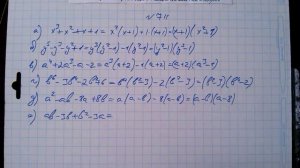 № 711
а) x³+x²+x+1=x²(x+1)+1·(x+1)=(x+1)(x²+1)
б) y⁵-y³-y²+1=y³(y²-1)-1(y²-1)=(y²-1)(y³-1)
в) a⁴+2a³-a-2=a³(a+2)-1(a+2)=(a+2)(a³-1)
г) b⁶-3b⁴-2b²+6=b⁴(b²-3)-2(b²-3)=(b²-3)(b⁴-2)
д) a²-ab-8a+8b=a(a-b)-8(a-b)=(a-b)(a-8)
е) ab-3b+b²-3a=